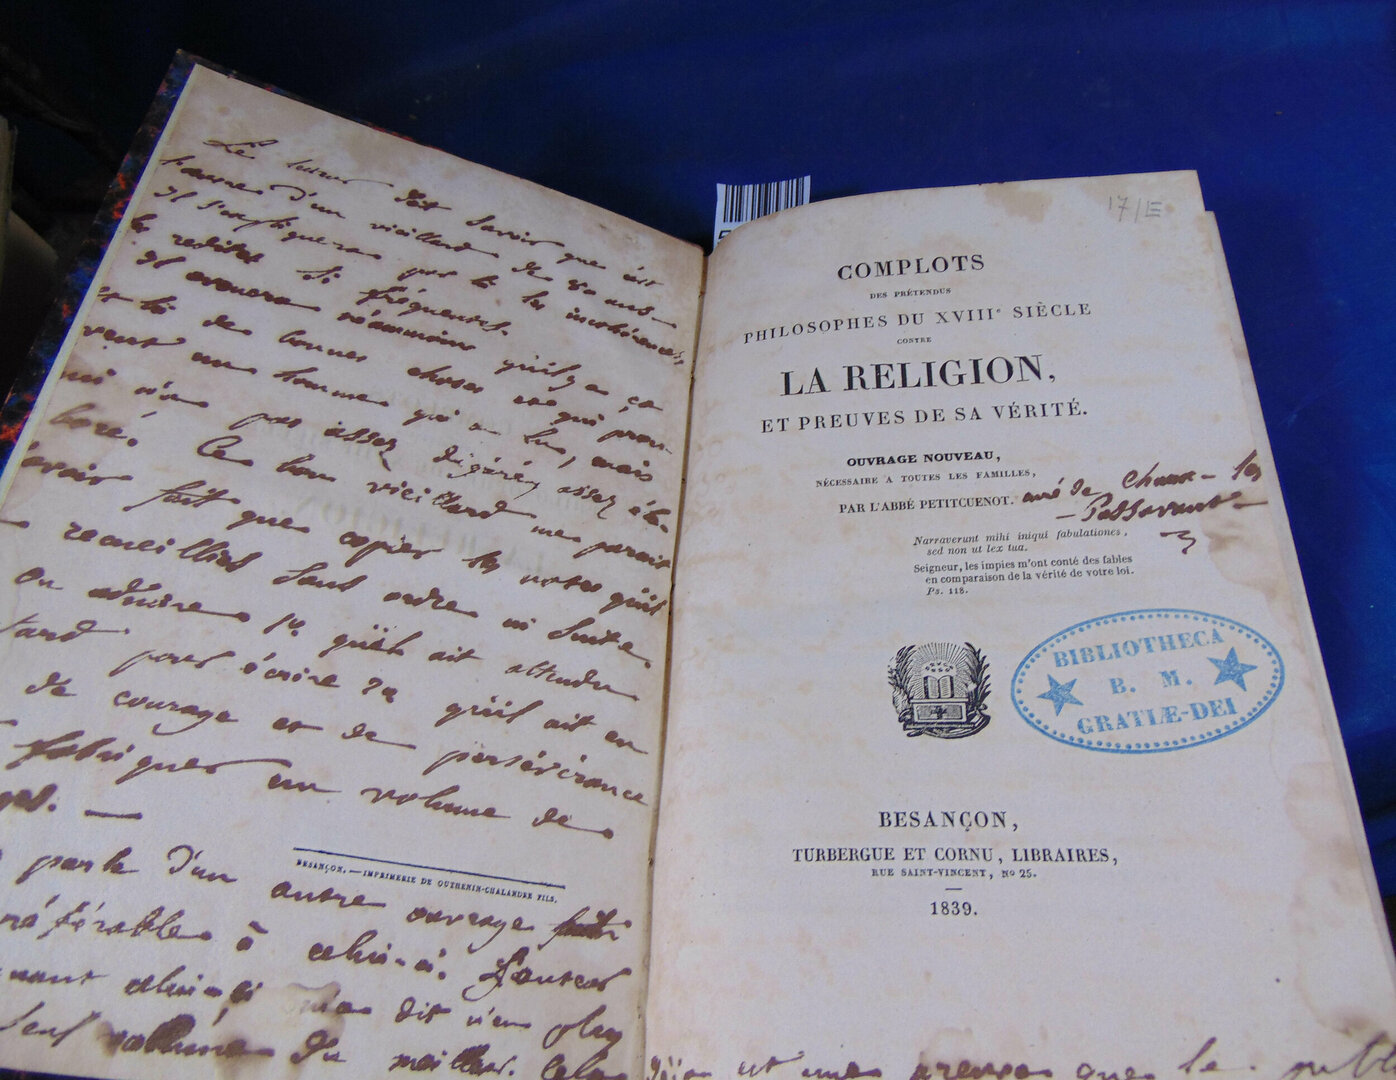 Le lecteur doit savoir que c'est
l'œuvre d'un vieillard de 80 ans
Il s'expliquera par là les incohérences,
les redites si fréquentes.
Il avouera néanmoins qu'il y a çà
et là de bonnes choses et qui prou-
vent un homme qui a lu, mais
qui n'a pas assez digéré, assez éla-
boré. Ce bon vieillard me parait
n'avoir fait que copier les notes qu'il
a recueillies sans ordre ni suite.
On admire 1º qu'il ait attendu
tard pour écrire 2º qu'il ait eu
de courage et de persévérance
fabriquer un volume de
parle d'un autre ouvrage
préférable à celui-ci. L'auteur
dit n'en plus
seul volume du meilleur.
BESANÇON, — IMPRIMERIE DE OUTHENIN-CHALANDRE FILS.
17/E
COMPLOTS
DES PRÉTENDUS
PHILOSOPHES DU XVIIIe SIÈCLE
CONTRE
LA RELIGION,
ET PREUVES DE SA VÉRITÉ.
OUVRAGE NOUVEAU,
NÉCESSAIRE A TOUTES LES FAMILLES,
PAR L'ABBÉ PETITCUENOT. curé de Chaux-les
-Passavant-
Narraverunt mihi iniqui fabulationes,
sed non ut lex tua.
Seigneur, les impies m'ont conté des fables
en comparaison de la vérité de votre loi.
Ps. 118.
BIBLIOTHECA
B. M.
GRATIÆ-DEI
BESANÇON,
TURBERGUE ET CORNU, LIBRAIRES,
RUE SAINT-VINCENT, No 25.
1839.
est une preuve que le